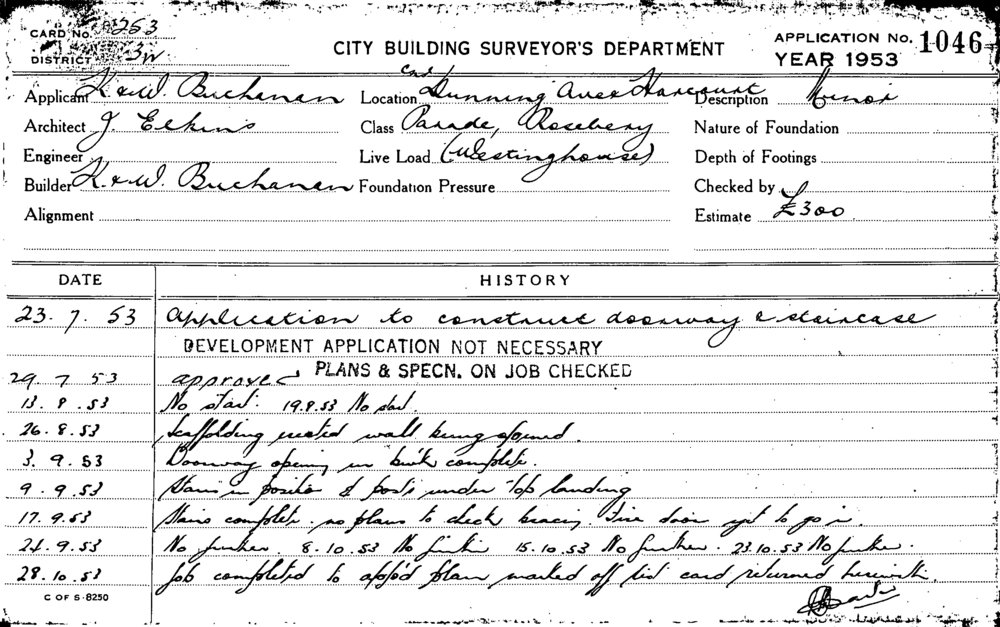 CARD No. 253
DISTRICT 3W
CITY BUILDING SURVEYOR'S DEPARTMENT
APPLICATION No. 1046
YEAR 1953
Applicant K & W. Buchanan
Location Cnr Dunning Ave & Harcourt
Description Minor
Architect J. Elkins
Class Parade, Rosebery
Nature of Foundation
Engineer
Live Load (Westinghouse)
Depth of Footings
Builder K. & W. Buchanan
Foundation Pressure
Checked by
Alignment
Estimate £300
DATE HISTORY
23. 7. 53 Application to construct doorway & staircase
DEVELOPMENT APPLICATION NOT NECESSARY
29 7 53 approved PLANS & SPECN. ON JOB CHECKED
13. 8. 53 No start. 19.8.53 No start.
26. 8. 53 Scaffolding erected wall being opened.
3. 9. 53 Doorway opening in brick complete.
9. 9. 53 Stairs in position & posts under top landing
17. 9. 53 Stairs complete. no plans to check bracing. Fire door yet to go in.
24. 9. 53 No further. 8.10.53 No further 15.10.53 No further. 23.10.53 No further.
28. 10. 53 Job completed to app'd plan marked off list card returned herewith.
C OF S-8250